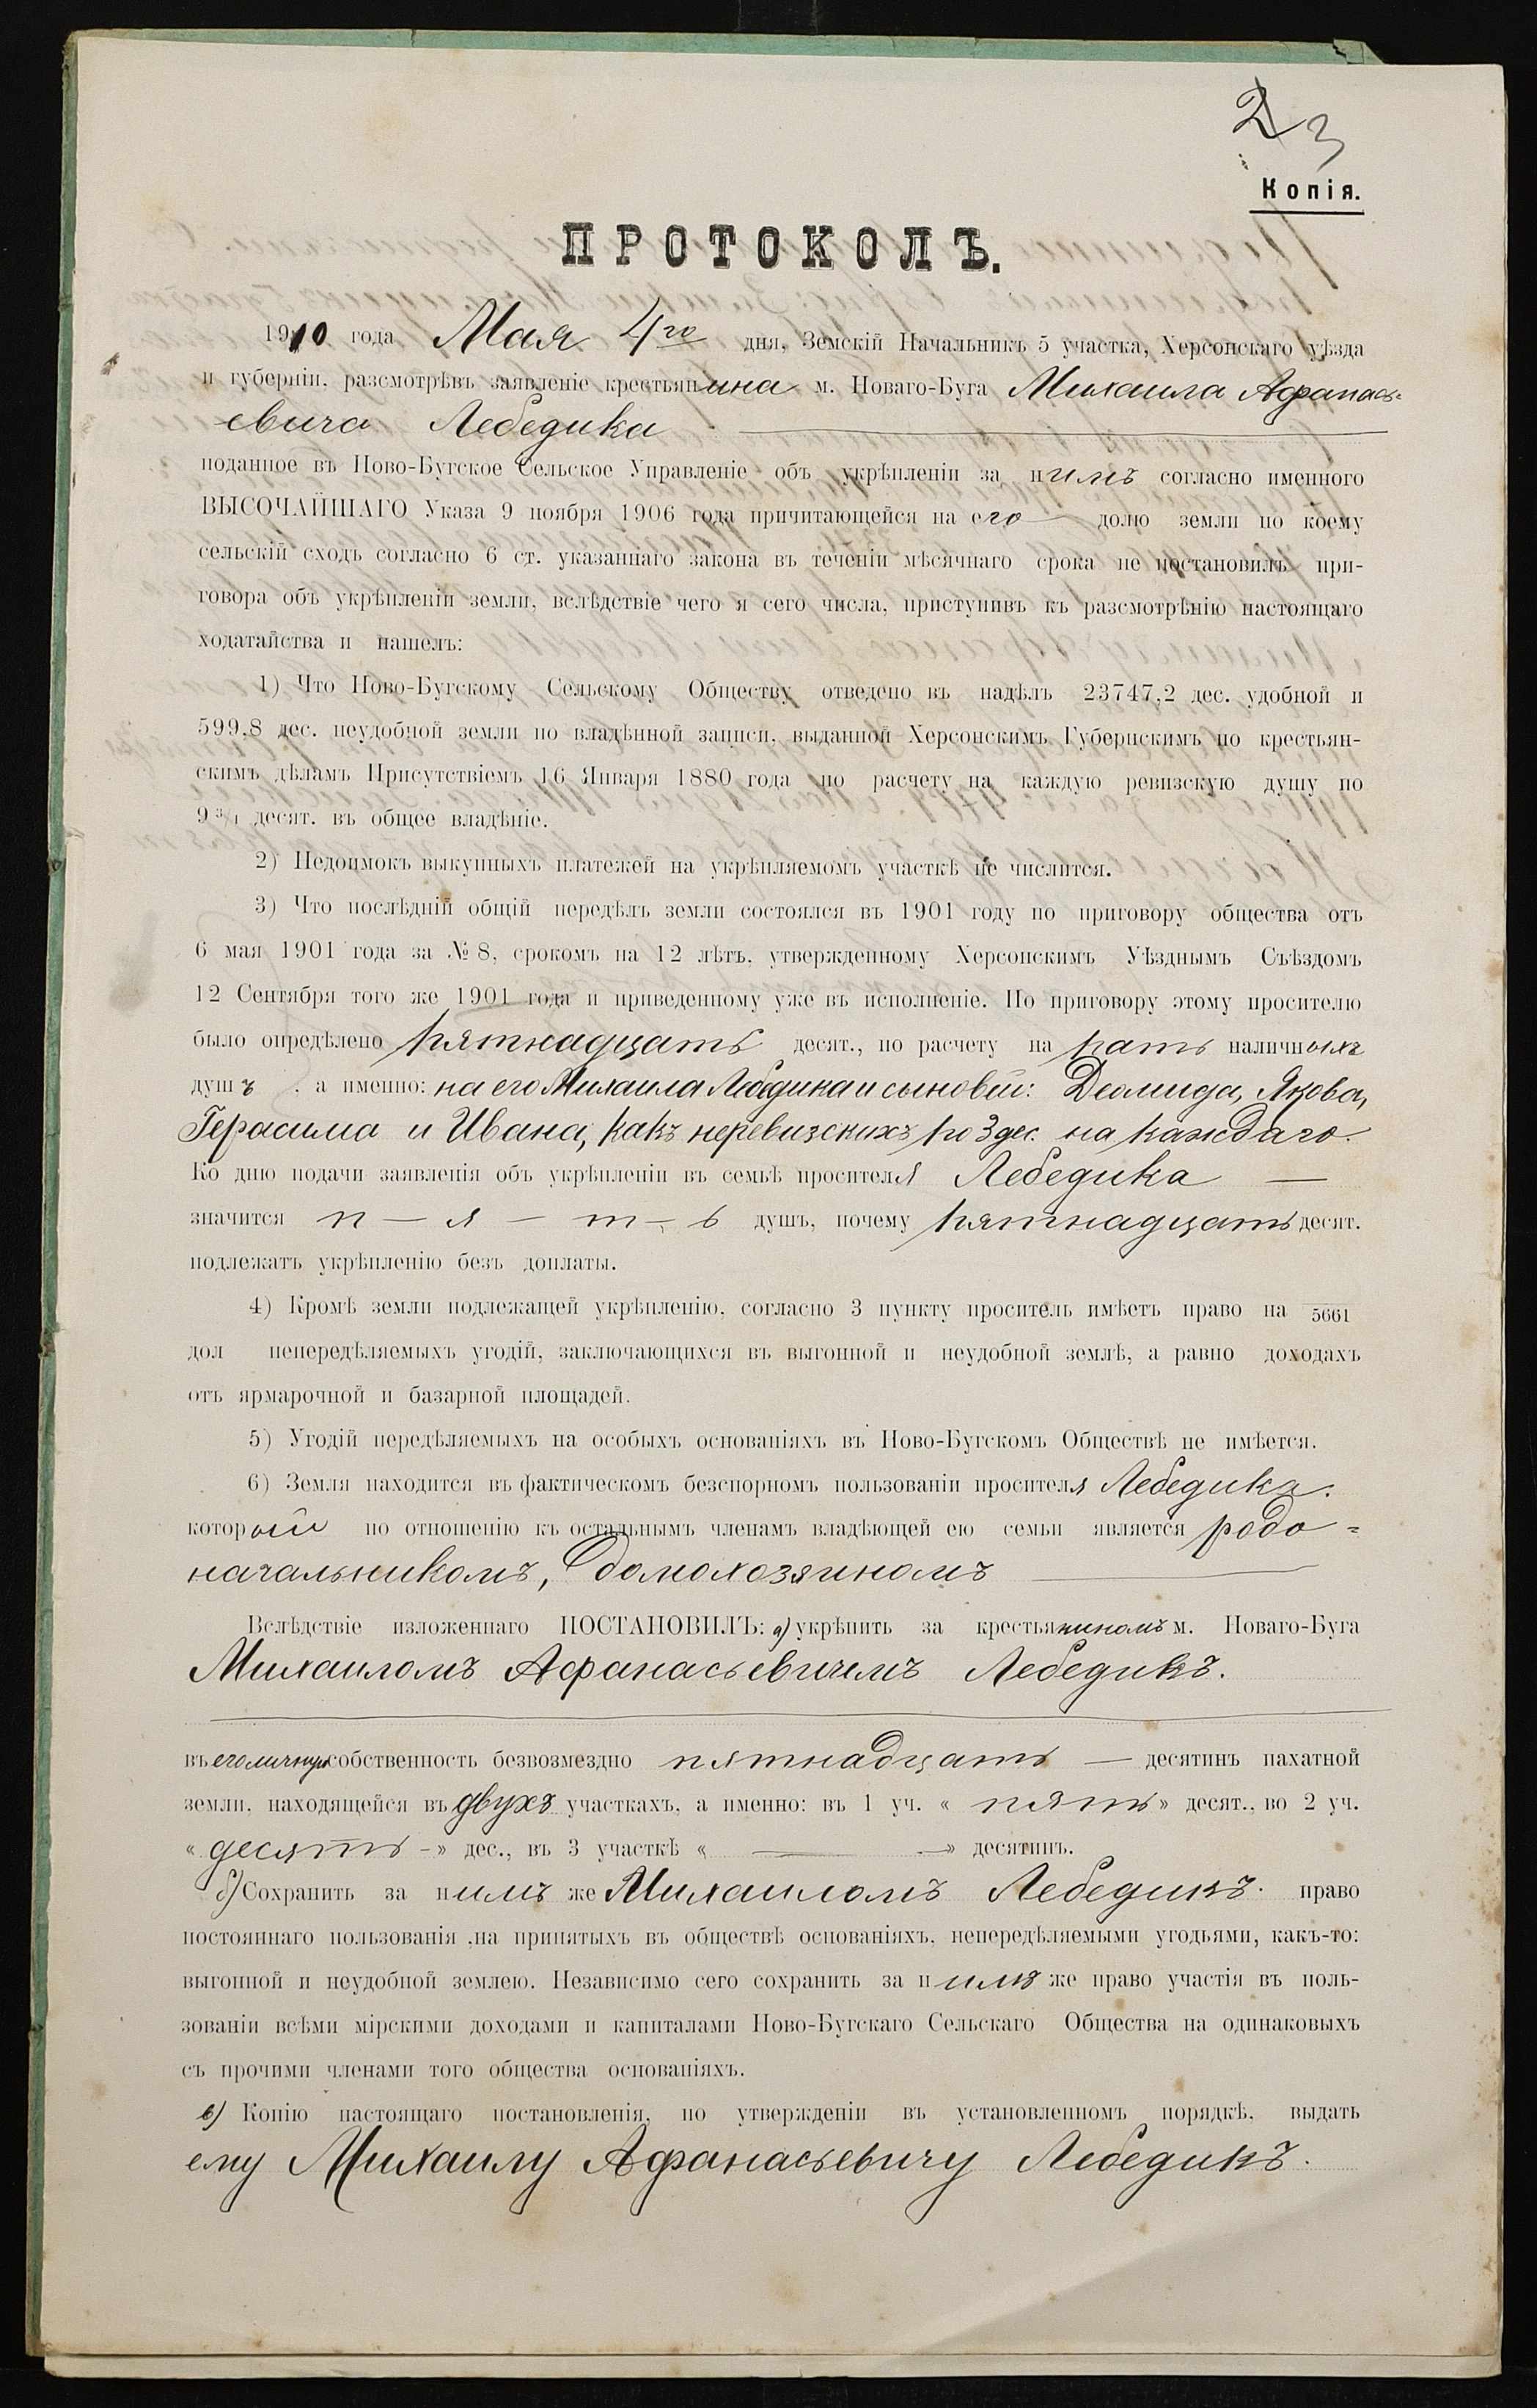 2 3
Копія.
ПРОТОКОЛЪ.
1910 года Мая 4го дня, Земскій Начальникъ 5 участка, Херсонскаго уѣзда
и губерніи, разсмотрѣвъ заявленіе крестьянина м. Новаго-Буга Михаила Афанась-
евича Лебедика
поданное въ Ново-Бугское Сельское Управленіе объ укрѣпленіи за нимъ согласно именного
ВЫСОЧАЙШАГО Указа 9 ноября 1906 года причитающейся на его долю земли по коему
сельскій сходъ согласно 6 ст. указаннаго закона въ теченіи мѣсячнаго срока не постановилъ при-
говора объ укрѣпленіи земли, вслѣдствіе чего я сего числа, приступивъ къ разсмотрѣнію настоящаго
ходатайства и нашелъ:
1) Что Ново-Бугскому Сельскому Обществу отведено въ надѣлъ 23747,2 дес. удобной и
599,8 дес. неудобной земли по владѣнной записи, выданной Херсонскимъ Губернскимъ по крестьян-
скимъ дѣламъ Присутствіемъ 16 Января 1880 года по расчету на каждую ревизскую душу по
9 3/4 десят. въ общее владѣніе.
2) Недоимокъ выкупныхъ платежей на укрѣпляемомъ участкѣ не числится.
3) Что послѣдній общій передѣлъ земли состоялся въ 1901 году по приговору общества отъ
6 мая 1901 года за № 8, срокомъ на 12 лѣтъ, утвержденному Херсонскимъ Уѣзднымъ Съѣздомъ
12 Сентября того же 1901 года и приведенному уже въ исполненіе. По приговору этому просителю
было опредѣлено пятнадцать десят., по расчету на пять наличныхъ
душъ, а именно: на его Михаила Лебедика и сыновей: Деомида, Якова,
Герасима и Ивана, какъ неревизскихъ по 3 дес. на каждаго.
Ко дню подачи заявленія объ укрѣпленіи въ семьѣ просителя Лебедика —
значится п — я — т — ь душъ, почему пятнадцать десят.
подлежатъ укрѣпленію безъ доплаты.
4) Кромѣ земли подлежащей укрѣпленію, согласно 3 пункту проситель имѣетъ право на 5661
дол непередѣляемыхъ угодій, заключающихся въ выгонной и неудобной землѣ, а равно доходахъ
отъ ярмарочной и базарной площадей.
5) Угодій передѣляемыхъ на особыхъ основаніяхъ въ Ново-Бугскомъ Обществѣ не имѣется.
6) Земля находится въ фактическомъ безспорномъ пользованіи просителя Лебедика.
который по отношенію къ остальнымъ членамъ владѣющей ею семьи является родо-
начальникомъ, домохозяиномъ
Вслѣдствіе изложеннаго ПОСТАНОВИЛЪ: а) укрѣпить за крестьяниномъ м. Новаго-Буга
Михаиломъ Афанасьевичемъ Лебедикъ.
въ его личную собственность безвозмездно пятнадцать — десятинъ пахатной
земли, находящейся въ двухъ участкахъ, а именно: въ 1 уч. « пять » десят., во 2 уч.
« десять -» дес., въ 3 участкѣ « — » десятинъ.
б) Сохранить за нимъ же Михаиломъ Лебедикъ. право
постояннаго пользованія ,на принятыхъ въ обществѣ основаніяхъ, непередѣляемыми угодьями, какъ-то:
выгонной и неудобной землею. Независимо сего сохранить за нимъ же право участія въ поль-
зованіи всѣми мірскими доходами и капиталами Ново-Бугскаго Сельскаго Общества на одинаковыхъ
съ прочими членами того общества основаніяхъ.
в) Копію настоящаго постановленія, по утвержденіи въ установленномъ порядкѣ, выдать
ему Михаилу Афанасьевичу Лебедикъ.